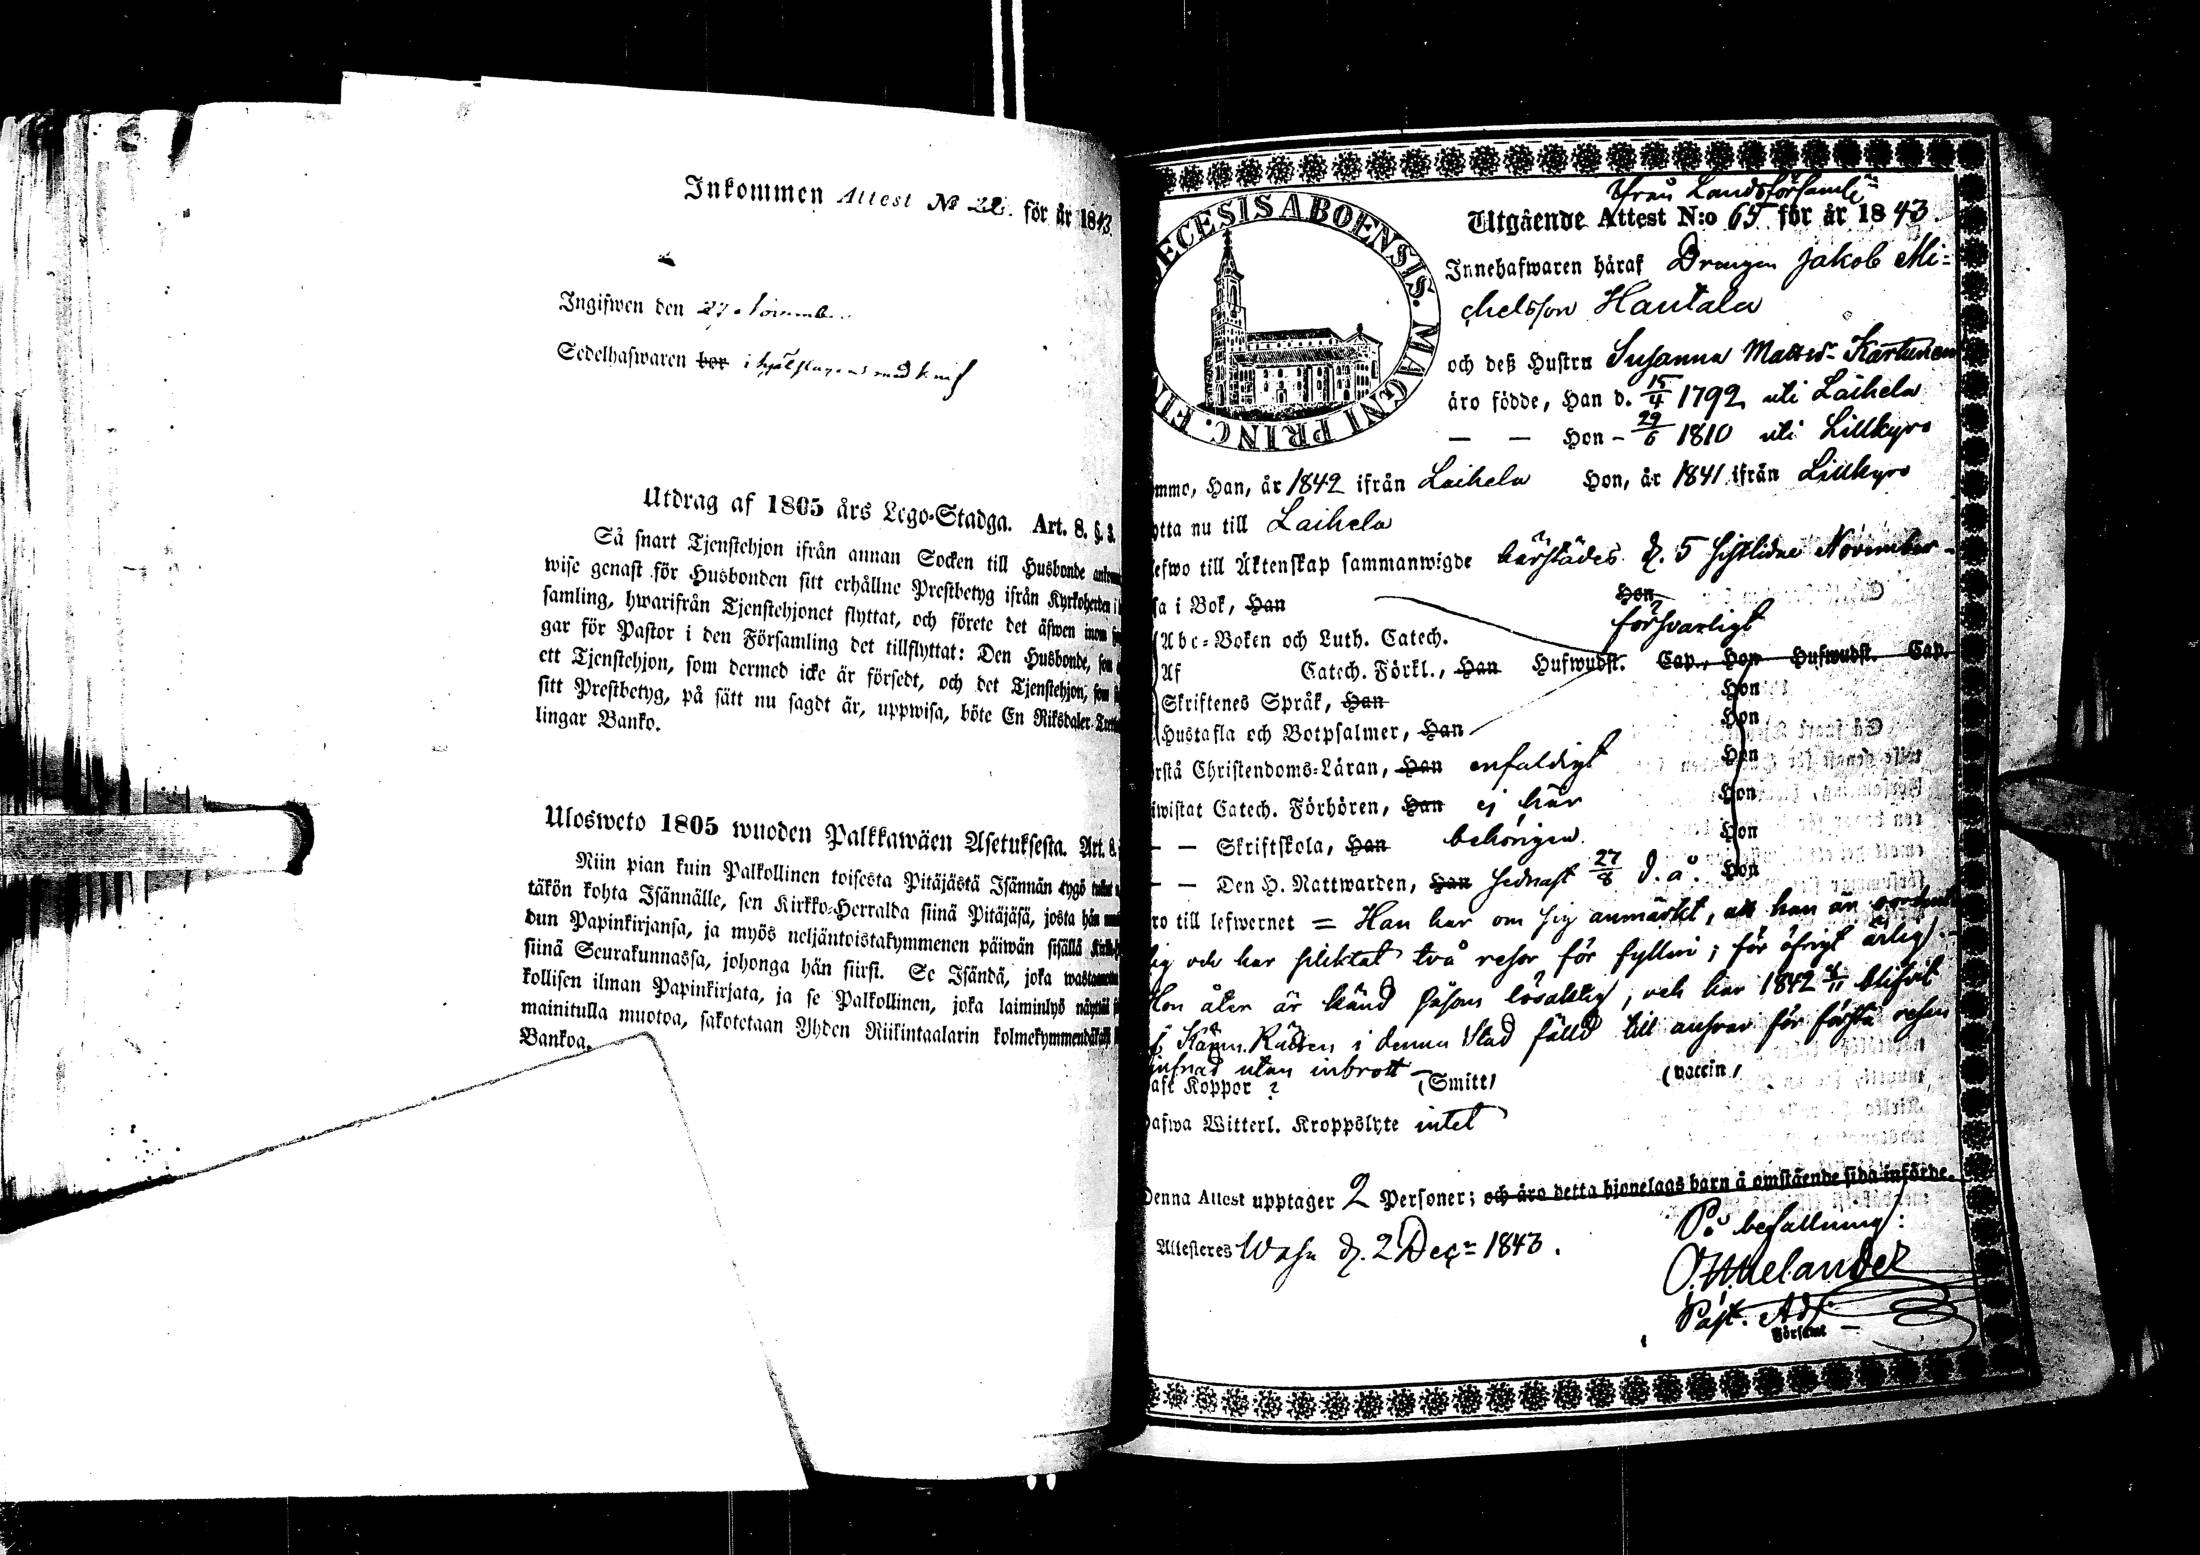 Inkommen Attest No 22. för år 1843.
Ingifwen den 27 November
Sedelhafwaren bor i med knif
Utdrag af 1805 års Lego-Stadga. Art. 8. §. 3.
Så snart Tjenstehjon ifrån annan Socken till Husbonde
wise genast för Husbonden sitt erhållne Prestbetyg ifrån Kyrkoherden i
samling, hwarifrån Tjenstehjonet flyttat, och förete det äfwen inom
gar för Pastor i den Församling det tillflyttat: Den Husbonde, som
ett Tjenstehjon, som dermed icke är försedt, och det Tjenstehjon, som
sitt Prestbetyg, på sätt nu sagdt är, uppwisa, böte En Riksdaler
lingar Banko.
Ulosweto 1805 wuoden Palkkawäen Asetuksesta. Art. 8.
Niin pian kuin Palkollinen toisesta Pitäjästä Isännän tygö
täkön kohta Isännälle, sen Kirkko-Herralda siinä Pitäjäsä, josta hän
dun Papinkirjansa, ja myös neljäntoistakymmenen päiwän sisällä
siinä Seurakunnassa, johonga hän siirsi. Se Isändä, joka
kollisen ilman Papinkirjata, ja se Palkollinen, joka laiminlyö
mainitulla muotoa, sakotetaan Yhden Riikintaalarin
Bankoa.
ECESIS ABOENSIS. MAGNI PRINC. FIN
ifrån Landsförsaml:
Utgående Attest N:o 65 för år 1843.
Innehafwaren häraf Drengen Jakob Mi-
chelsson Hautala
och deß Hustru Susanna Mattsdr Kartunen
äro födde, Han d. 15/4 1792 uti Laihela
— — Hon – 29/6 1810 uti Lillkyro
mmo, Han, år 1842 ifrån Laihela Hon, år 1841 ifrån Lillkyro
ytta nu till Laihela
lefwo till Äktenskap sammanwigde härstädes d. 5 sistlidne November
sa i Bok, Han Hon
försvarligt
Abc-Boken och Luth. Catech.
Af Catech. Förkl., Han Hufwudst. Cap., Hon Hufwudst. Cap.
Skriftenes Språk, Han Hon
Hustafla och Botpsalmer, Han Hon
rstå Christendoms-Läran, Han enfaldigt Hon
iwistat Catech. Förhören, Han ej här Hon
— — Skriftskola, Han behörigen Hon
— — Den H. Nattwarden, Han sednast 27/8 d. å. Hon
ro till lefwernet = Han har om sig anmärkt, att han är
lig och har pliktat två resor för fylleri; för öfrigt ärlig.
Hon åter är känd såsom lösaktig, och har 1842 blifvit
Kämn. Rätten i denna Stad fälld till ansvar för första resan
tjufnad utan inbrott
aft Koppor ? (Smitt) (vaccin)
afwa Witterl. Kroppslyte intet
Denna Attest upptager 2 Personer; och äro detta hjonelags barn å omstående sida införde.
Attesteres Wasa d. 2 Decr 1843.
På befallning:
O. W. Melander
Past. Adj.
Församl